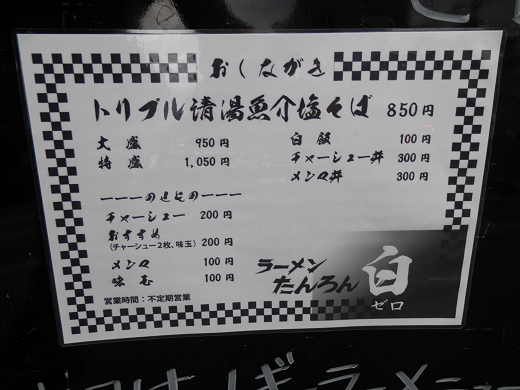 おしながき
トリプル清湯魚介塩そば 850円
大盛 950円
特盛 1,050円
白飯 100円
チャーシュー丼 300円
メンマ丼 300円
ーーーのせもの ーーー
チャーシュー 200円
おすすめ
(チャーシュー2枚、味玉) 200円
メンマ 100円
味玉 100円
営業時間：不定期営業
ラーメン
たんろん
白
ゼロ